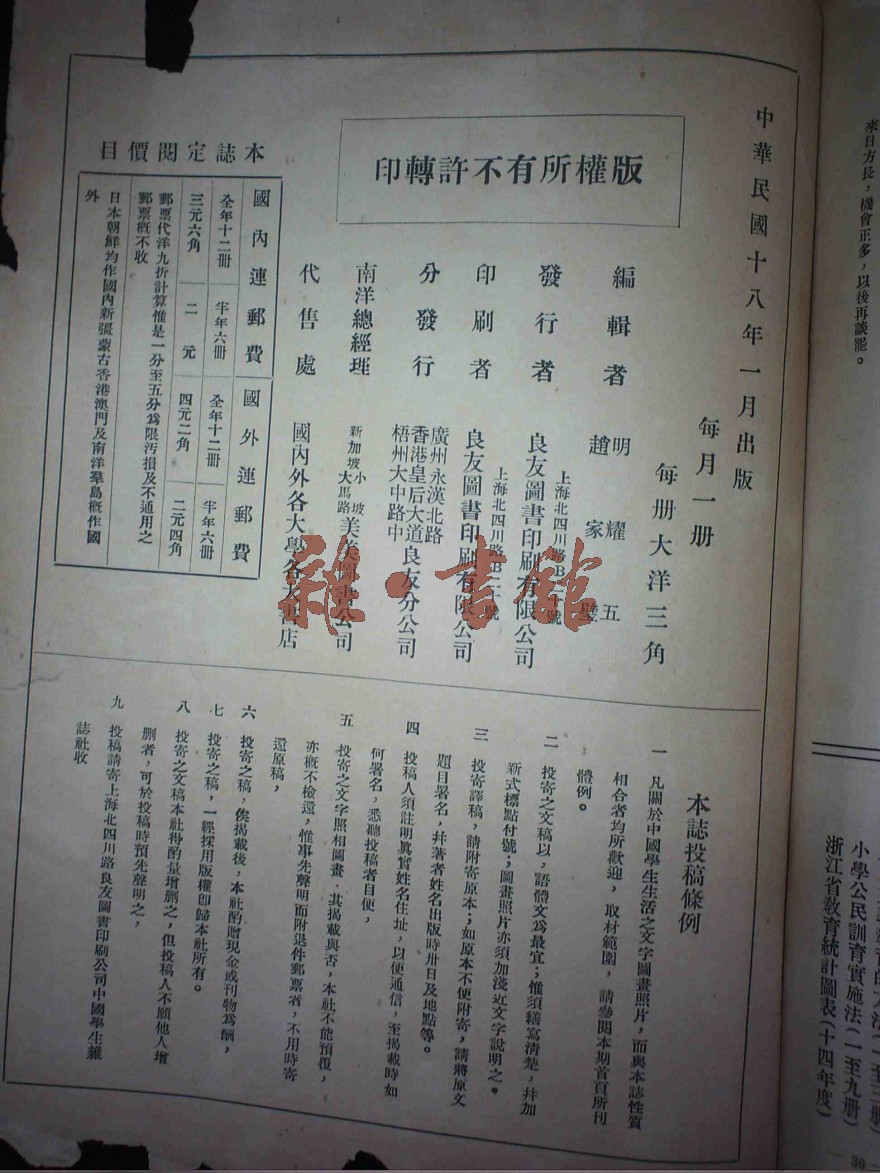 來日方長，機會正多，以後再談罷。
中華民國十八年一月出版
每月一册
每册大洋三角
版權所有不許轉印
編輯者
明耀五
趙家璧
發行者
上海北四川路B二十號
良友圖書印刷有限公司
印刷者
上海北四川路B二十號
良友圖書印刷有限公司
分發行
廣州永漢北路
香港皇后大道
梧州大中路中
良友分公司
南洋總經理
新加坡小坡
大馬路
美美圖書公司
代售處
國內外各大學各大書店
本誌定閱價目
國內連郵費
國外連郵費
全年十二冊
半年六冊
全年十二冊
半年六冊
三元六角
二元
四元二角
二元四角
郵票代洋九折計算惟是一分至五分爲限污損及不通用之
郵票概不收
日本朝鮮均作國內新疆蒙古香港澳門及南洋羣島概作國
外
雜·書館
本誌投稿條例
一 凡關於中國學生生活之文字圖畫照片，而與本誌性質
相合者均所歡迎，取材範圍，請參閱本期首頁所刊
體例。
二 投寄之文稿以，語體文爲最宜；惟須繕寫清楚，幷加
新式標點付號；圖畫照片亦須加淺近文字說明之。
三 投寄譯稿，請附寄原本；如原本不便附寄，請將原文
題目署名，幷著者姓名出版時卅日及地點等。
四 投稿人須註明眞實姓名住址，以便通信，至揭載時如
何署名，悉聽投稿者自便，
五 投寄之文字照相圖畫，其揭載與否，本社不能預覆，
亦概不檢還，惟事先聲明而附退件郵票者，不用時寄
還原稿，
六 投寄之稿，俟揭載後，本社酌贈現金或刊物爲酬，
七 投寄之稿，一經採用版權卽歸本社所有。
八 投寄之文稿本社得酌量增删之，但投稿人不願他人增
删者，可於投稿時預先聲明之，
九 投稿請寄上海北四川路良友圖書印刷公司中國學生雜
誌社收
小學公民訓育實施法(一至九册)
浙江省敎育統計圖表(十四年度)
36